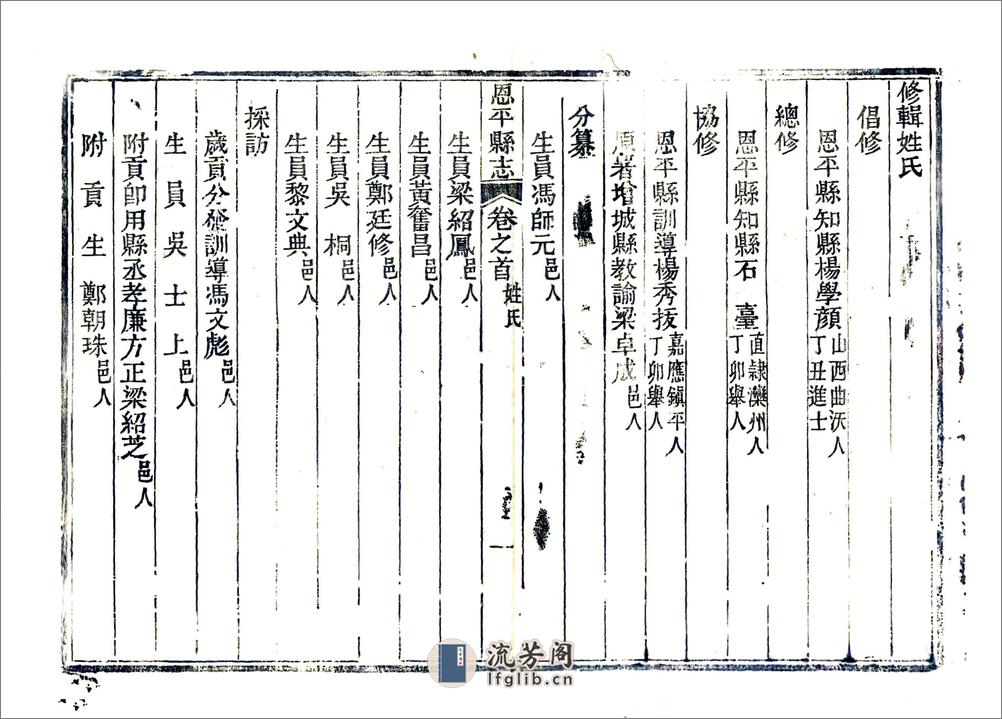 修輯姓氏
倡修
恩平縣知縣楊學顏山西曲沃人丁丑進士
總修
恩平縣知縣石臺直隸灤州人丁卯舉人
協修
恩平縣訓導楊秀拔嘉應鎮平人丁卯舉人
原署增城縣教諭梁卓成邑人
分纂
生員馮師元邑人
恩平縣志 卷之首 姓氏 一
生員梁紹鳳邑人
生員黃奮昌邑人
生員鄭廷修邑人
生員吳桐邑人
生員黎文典邑人
採訪
歲貢分發訓導馮文彪邑人
生員吳士上邑人
附貢即用縣丞孝廉方正梁紹芝邑人
附貢生鄭朝珠邑人
流芳阁
lfglib.cn